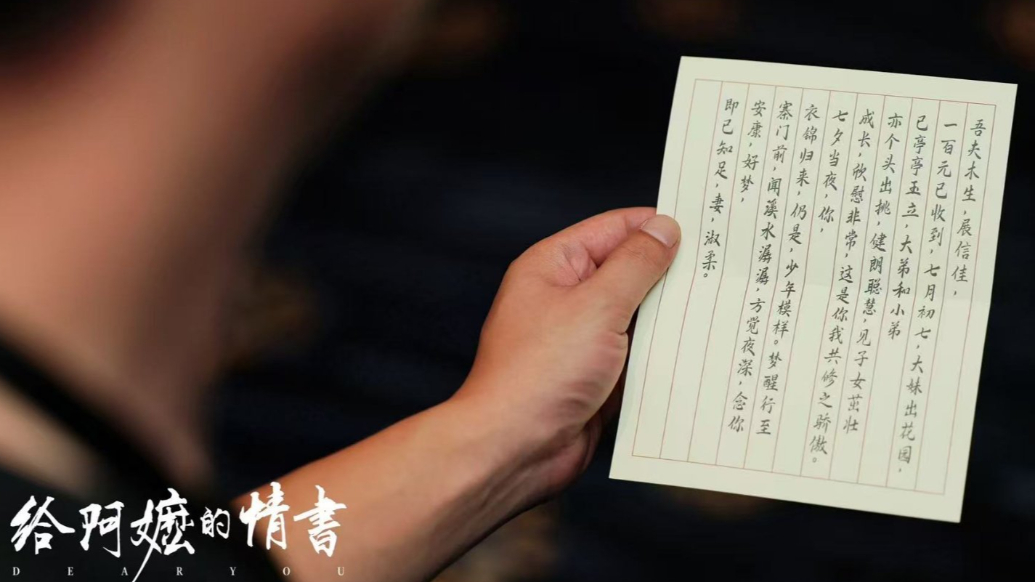 吾夫木生，展信佳，
一百元已收到，七月初七，大妹出花园，
已亭亭玉立，大弟和小弟
亦个头出挑，健朗聪慧，见子女茁壮
成长，欣慰非常，这是你我共修之骄傲。
七夕当夜，你，
衣锦归来，仍是，少年模样。梦醒行至
寨门前，闻溪水潺潺，方觉夜深，念你
安康，好梦，
即已知足，妻，淑柔。
给阿嬷的情書
DEAR YOU